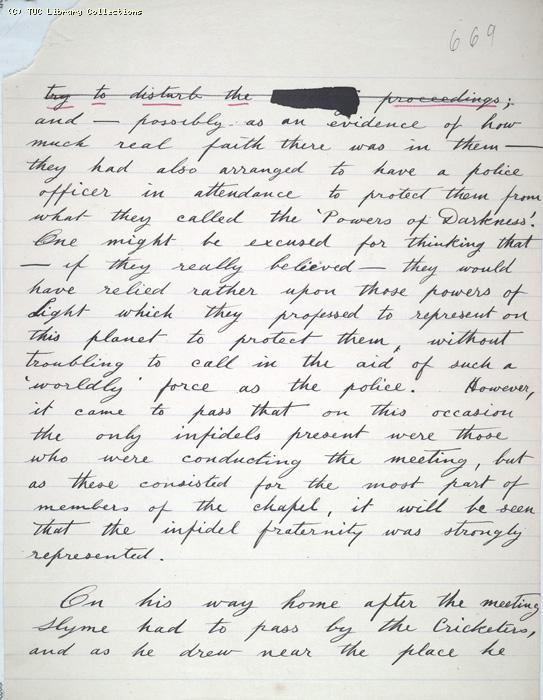 (C) TUC Library Collections
669
try to disturb the proceedings;
and — possibly as an evidence of how
much real faith there was in them —
they had also arranged to have a police
officer in attendance to protect them from
what they called the 'Powers of Darkness'.
One might be excused for thinking that
— if they really believed — they would
have relied rather upon those powers of
Light which they professed to represent on
this planet to protect them, without
troubling to call in the aid of such a
'worldly' force as the police. However,
it came to pass that on this occasion
the only infidels present were those
who were conducting the meeting, but
as these consisted for the most part of
members of the chapel, it will be seen
that the infidel fraternity was strongly
represented.
On his way home after the meeting
Slyme had to pass by the Cricketers,
and as he drew near the place he